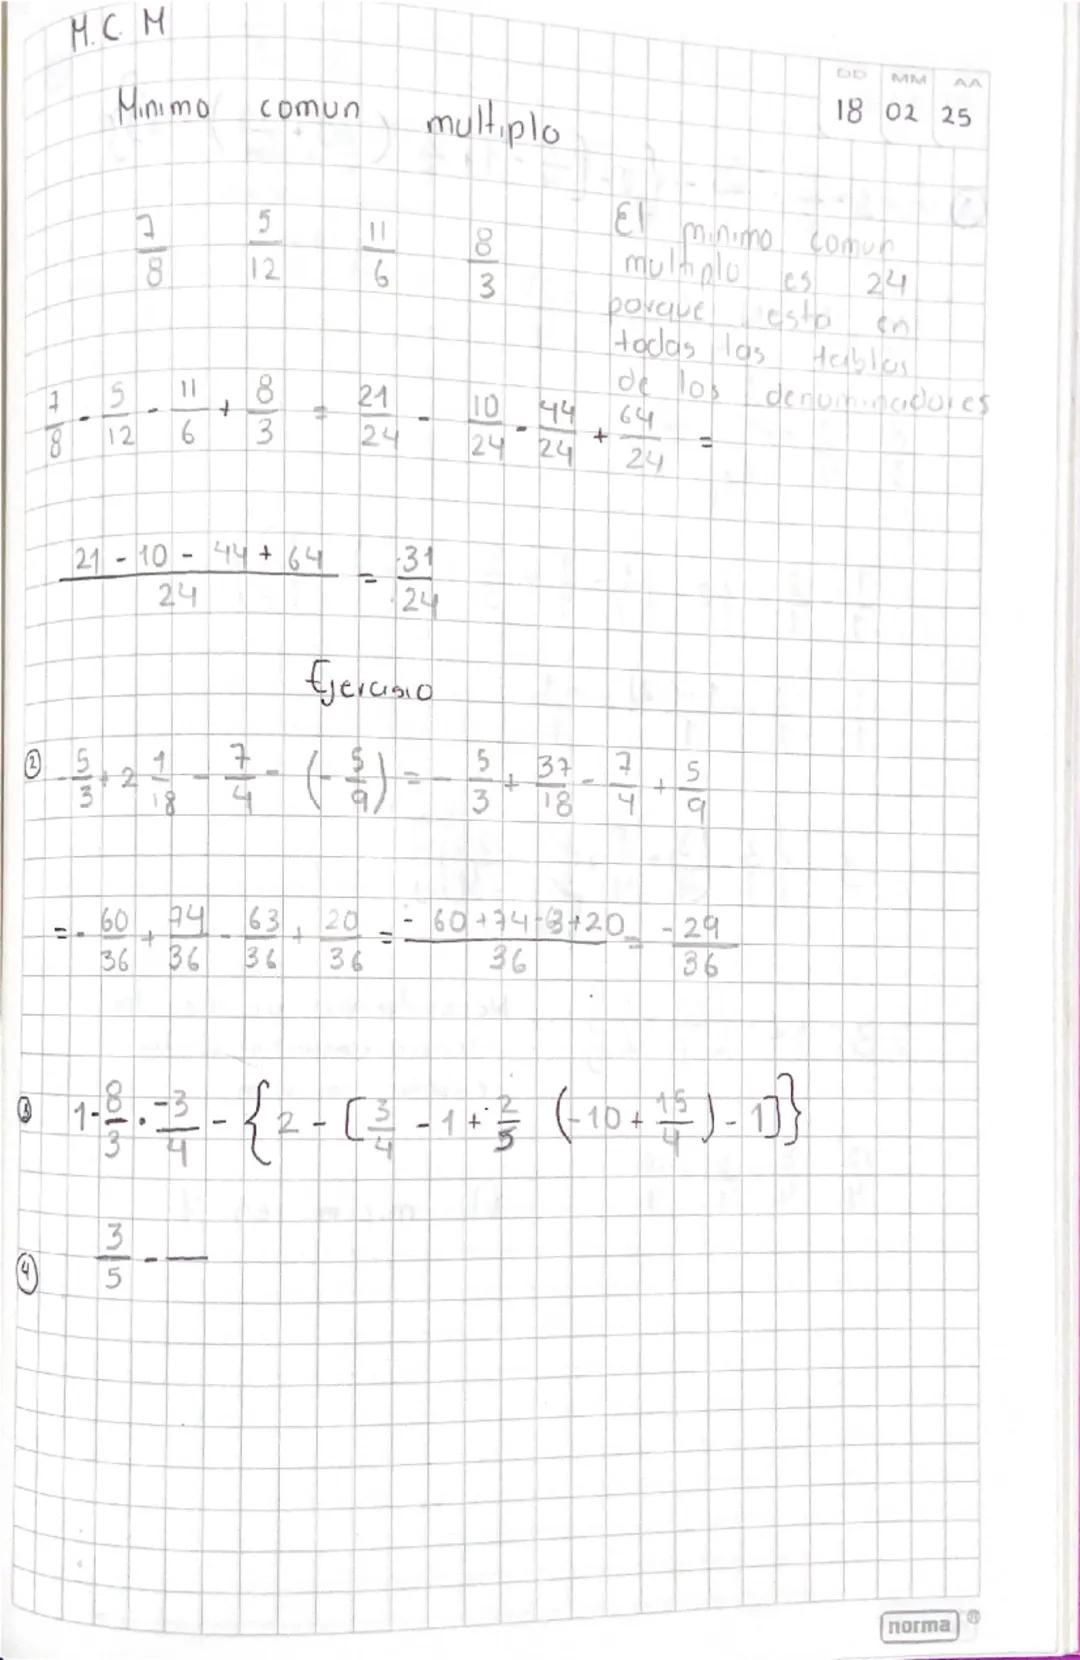 M.C.M
DD MM AA
18 02 25
Minimo comun multiplo
7/8 5/12 11/6 8/3
El minimo comun
multiplo es 24
porque esta en
todas las tablas
de los denominadores
7/8 - 5/12 - 11/6 + 8/3 = 21/24 - 10/24 - 44/24 + 64/24 =
21 - 10 - 44 + 64 / 24 = 31/24
Ejercisio
② - 5/3 + 2 1/18 - 7/4 - (- 5/9) = - 5/3 + 37/18 - 7/4 + 5/9
= - 60/36 + 74/36 - 63/36 + 20/36 = - 60 + 74 - 63 + 20 / 36 = - 29/36
③ 1 - 8/3 · -3/4 - {2 - [3/4 - 1 + 2/5 (-10 + 15/4) - 1]}
④ 3/5 - —
norma